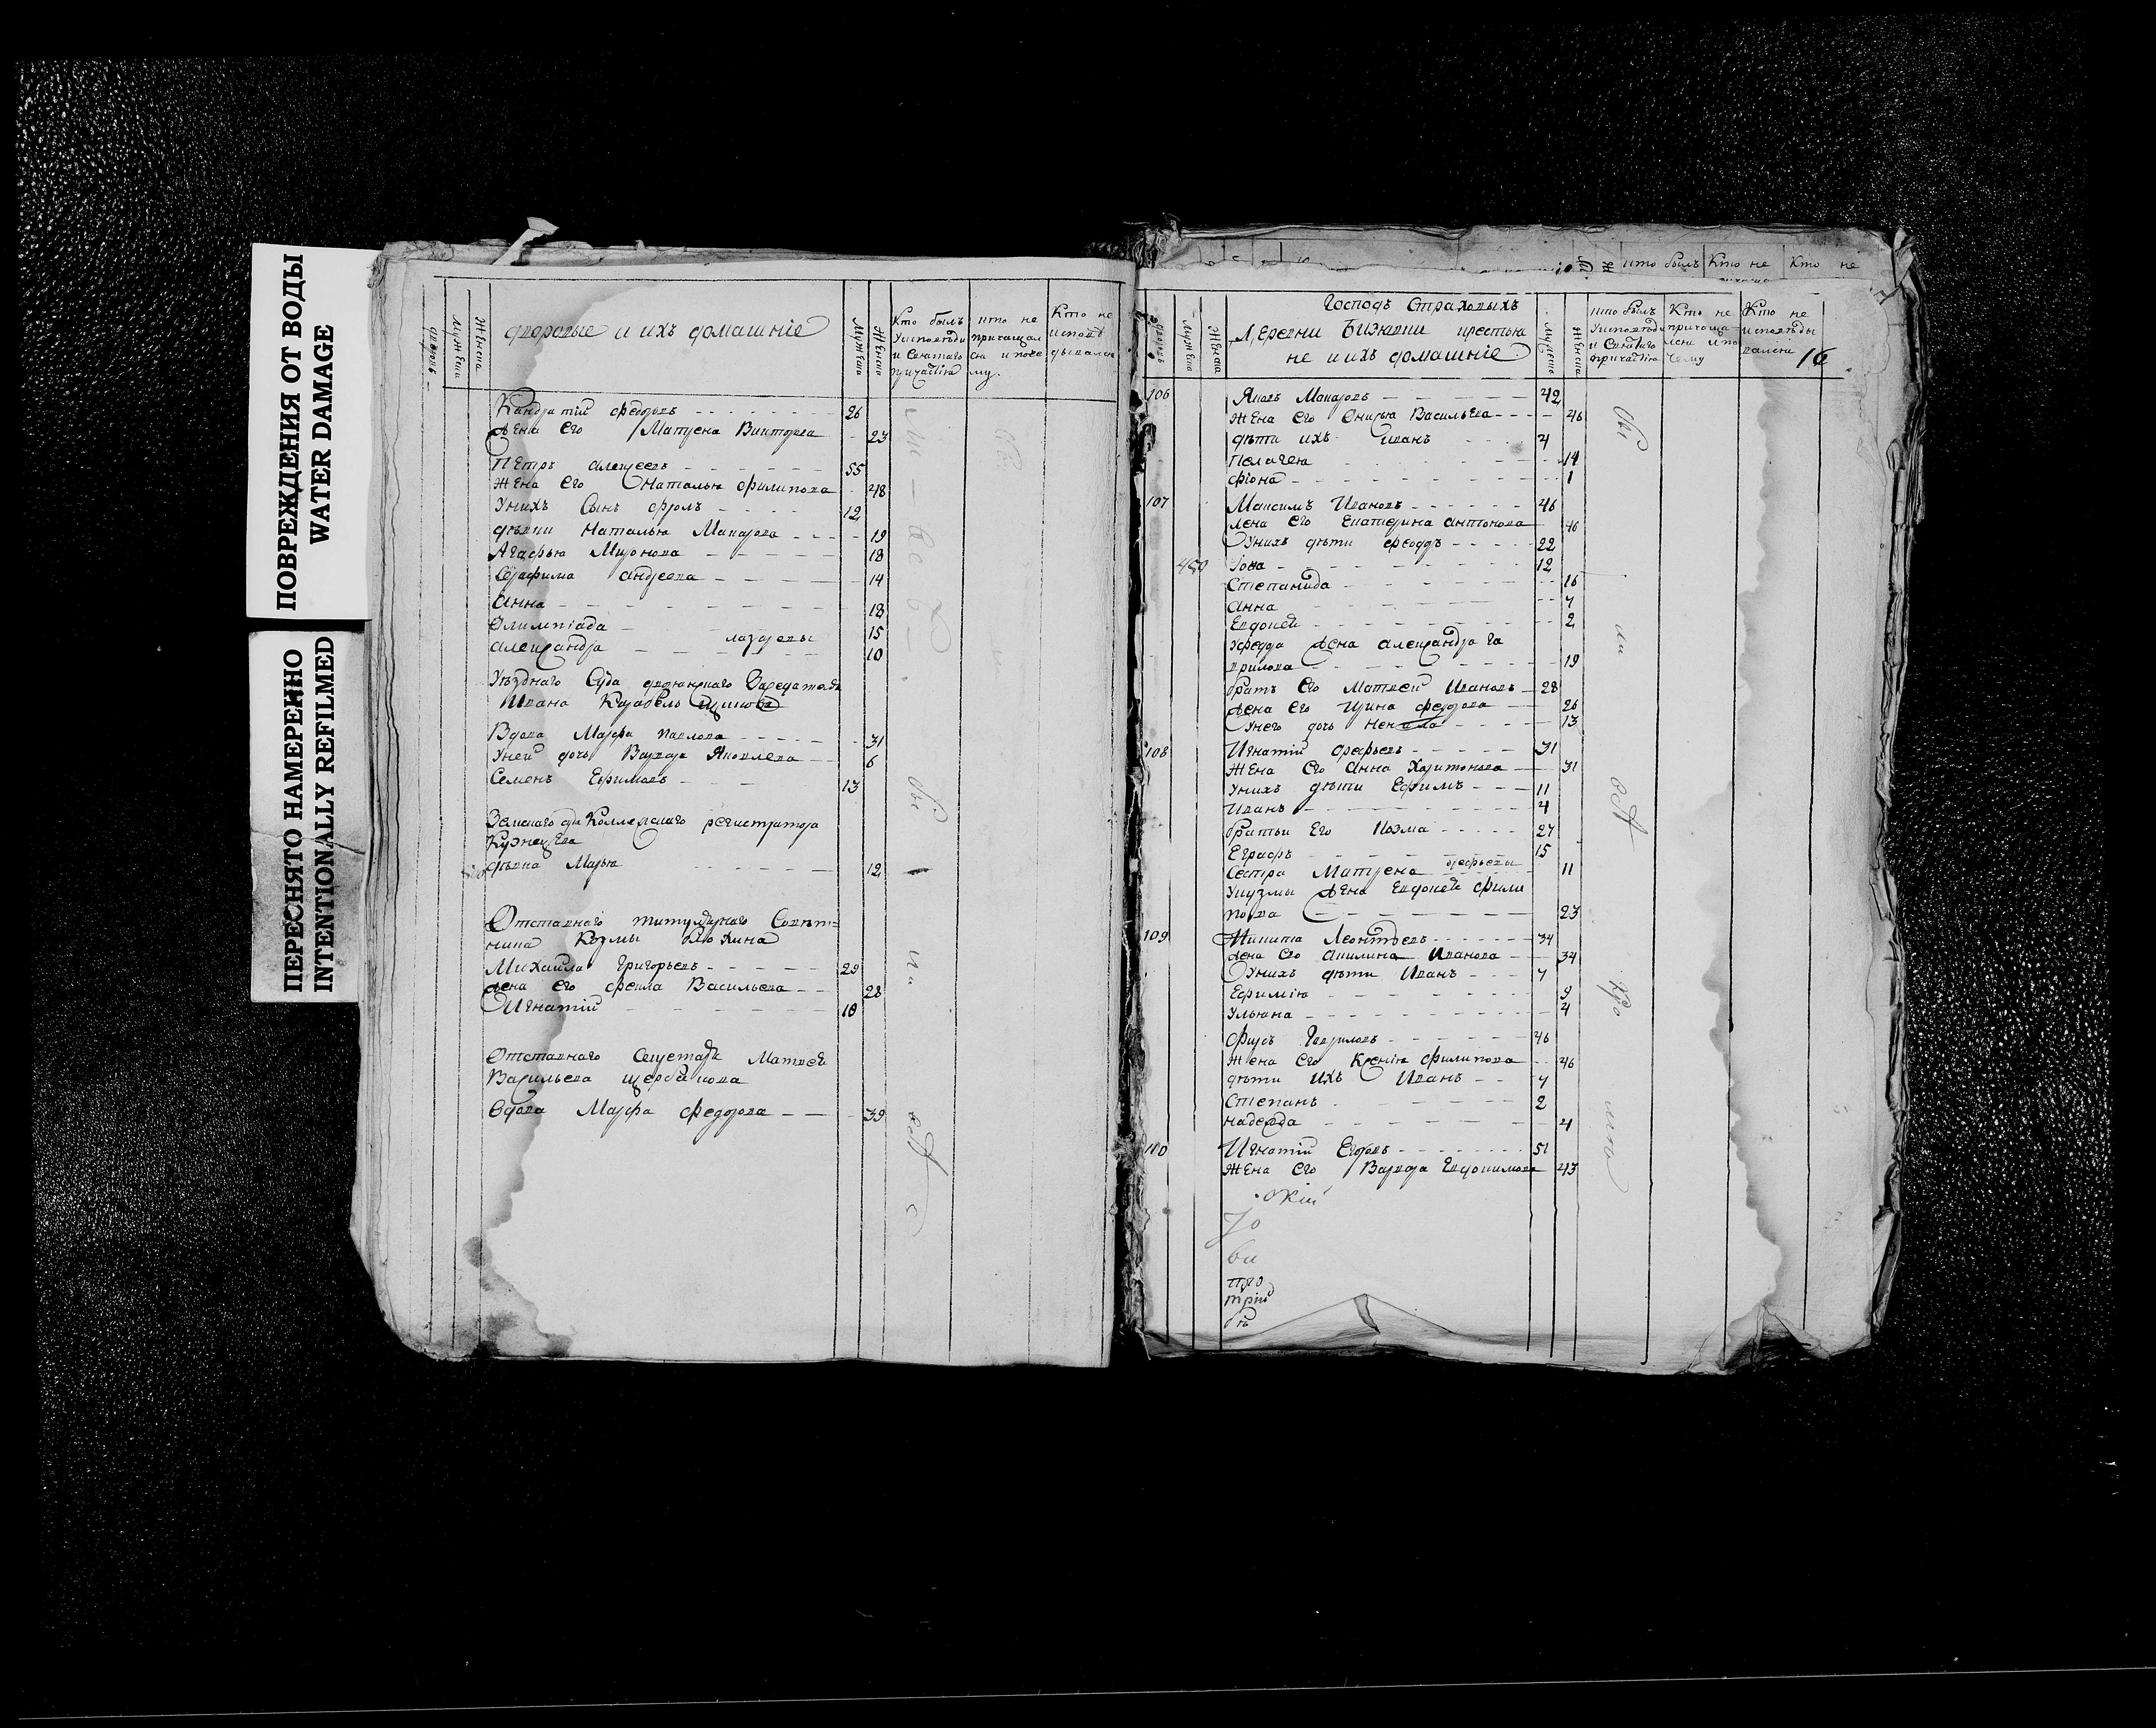 ПОВРЕЖДЕНИЯ ОТ ВОДЫ
WATER DAMAGE
ПЕРЕСНЯТО НАМЕРЕННО
INTENTIONALLY REFILMED
Мужеска
Женска
дворовые и ихъ домашніе
Мужеска
Женска
Кто былъ
и Святаго
причастіа
кто не
причащал
ся и поче
му.
Кто не
исповѣ
дывался
Кандратій Федоровъ 26
Жена его Матрена Викторова 23
Петръ Алексеевъ 55
Жена его Наталья Филипова 48
У нихъ сынъ Фролъ 12
дѣвки Наталья Макарова 19
Агафья Миронова 18
Серафима Андреева 14
Анна 18
Олимпіада 15
Александра Лазаревы 10
Уѣзднаго Суда дворянскаго Заседателя
Ивана
Вдова Марфа Павлова 31
У ней дочь Варвара Яковлева 6
Семенъ Ефимовъ 13
Земскаго суда Коллежскаго регистратора
Кузнецова
дѣвка Марья 12
Отставнаго титулярнаго Совѣт=
ника Козмы
Михайла Григорьевъ 29
Жена его Фекла Васильева 28
Игнатій 10
Отставнаго Секретаря Матвея
Васильева Щербакова
Вдова Марфа Федорова 39
кто былъ Кто не Кто не
дворовъ
Мужеска
Женска
Господъ Страховыхъ
Деревни Бизюкни крестья
не и ихъ домашніе
Мужеска
Женска
кто былъ
У исповѣди
и Святаго
причастіа
Кто не
причаща
чему
Кто не
исповѣды
вался
16
106 Яковъ Макаровъ 42
Жена его Онисья Васильева 46
дѣти ихъ Иванъ 4
Пелагея 14
Фіона 1
107 Максимъ Ивановъ 46
Жена его Екатерина Антонова 46
У нихъ дѣти Феодоръ 22
450 Іона 12
Степанида 16
Анна 7
Евдокея 2
У Федора Жена Александра Га
врилова 19
братъ его Матвей Ивановъ 28
Жена его Ирина Федорова 26
У него дочь Ненила 13
108 Игнатій Орефьевъ 31
Жена его Анна Харитонова 31
У нихъ дѣти Ефимъ 11
Иванъ 4
братьи его Козма 27
Еграфъ 15
Сестра Матрена Орефьевы 11
У Кузмы Жена Евдокея Фили
пова 23
109 Никита Леонтьевъ 34
Жена его Акилина Иванова 34
У нихъ дѣти Иванъ 7
Ефимія 9
Ульяна 4
Фирсъ Гавриловъ 46
Жена его Ксенія Филипова 46
дѣти ихъ Иванъ 7
Степанъ 2
Надежда 4
110 Игнатій Егоровъ 51
Жена его Варвара Евдокимова 43